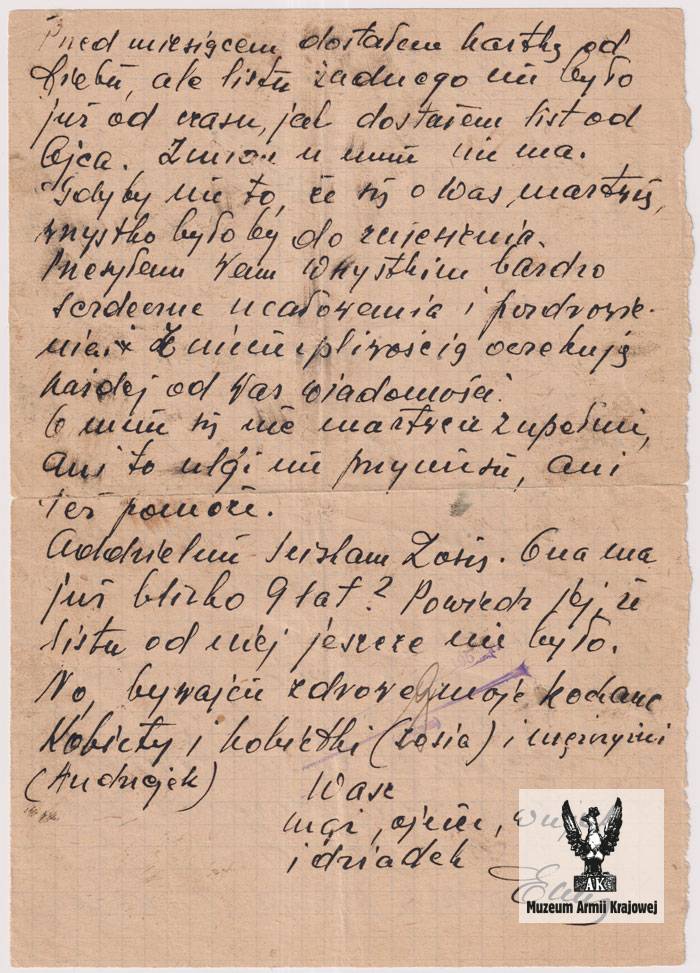 Przed miesiącem dostałem kartkę od
Ciebie, ale listu żadnego nie było
już od czasu, jak dostałem list od
Ojca. Zmian u mnie nie ma.
Gdyby nie to, że się o Was martwię,
wszystko byłoby do zniesienia.
Przesyłam Wam Wszystkim bardzo
serdeczne ucałowania i pozdrowie-
nia. Z niecierpliwością oczekuję
każdej od Was wiadomości.
O mnie się nie martwcie zupełnie,
ani to ulgi nie przyniesie, ani
też pomoże.
Oddzielnie ściskam Zosię. Ona ma
już blizko 9 lat? Powiedz jej, że
listu od niej jeszcze nie było.
No, bywajcie zdrowe moje kochane
Kobiety i kobietki (Zosia) i mężczyźni
(Andrzejek)
Wasz
mąż, ojciec,
i dziadek
AK
Muzeum Armii Krajowej